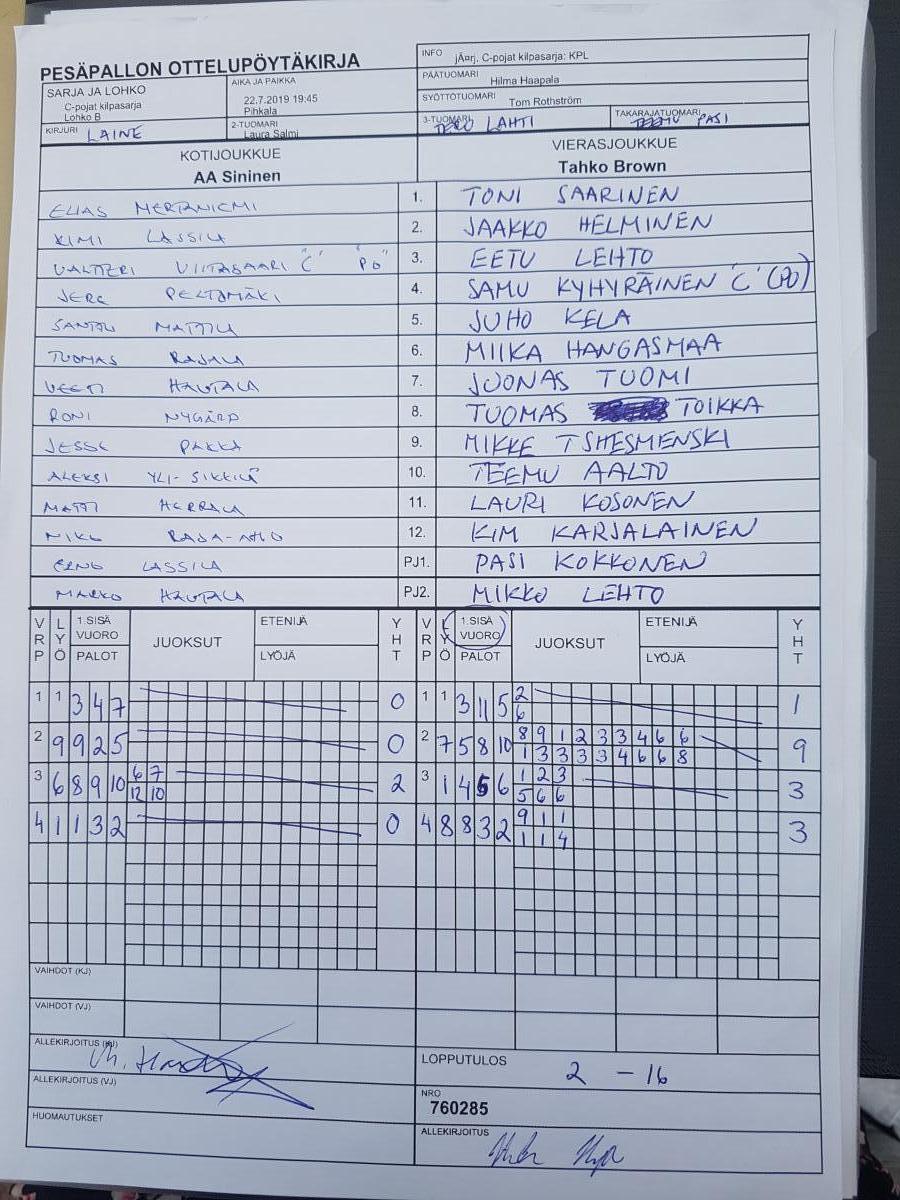 PESÄPALLON OTTELUPÖYTÄKIRJA
INFO jÃ¤rj, C-pojat kilpasarja: KPL
PÄÄTUOMARI Hilma Haapala
SARJA JA LOHKO C-pojat kilpasarja Lohko B
AIKA JA PAIKKA 22.7.2019 19:45 Pihkala
SYÖTTÖTUOMARI Tom Rothström
KIRJURI LAINE
2-TUOMARI Laura Salmi
3-TUOMARI TERO LAHTI
TAKARAJATUOMARI TEEMU PASI
KOTIJOUKKUE VIERASJOUKKUE
AA Sininen Tahko Brown
ELIAS MERTANIEMI 1. TONI SAARINEN
KIMI LASSILA 2. JAAKKO HELMINEN
VALTTERI VIITASAARI "C" "PO" 3. EETU LEHTO
JERE PELTOMÄKI 4. SAMU KYHYRÄINEN 'C' (PO)
SANTTU MATTILA 5. JUHO KELA
TUOMAS RAJALA 6. MIIKA HANGASMAA
VEETI HAUTALA 7. JOONAS TUOMI
RONI NYGÅRD 8. TUOMAS TOIKKA
JESSE PAKKA 9. MIKKE TSHESMENSKI
ALEKSI YLI-SIKKILÄ 10. TEEMU AALTO
MATTI HERRALA 11. LAURI KOSONEN
NIKO RAJA-AHO 12. KIM KARJALAINEN
EINO LASSILA PJ1. PASI KOKKONEN
MARKO HAUTALA PJ2. MIKKO LEHTO
VRP LYÖ 1.SISÄ VUORO PALOT JUOKSUT ETENIJÄ LYÖJÄ YHT VRP LYÖ 1.SISÄ VUORO PALOT JUOKSUT ETENIJÄ LYÖJÄ YHT
1 1 3 4 7 0 1 1 3 11 5 2 1
6
2 9 9 2 5 0 2 7 5 8 10 8 9 1 2 3 3 4 6 6 9
1 3 3 3 3 4 6 6 8
3 6 8 9 10 6 7 2 3 1 4 5 6 1 2 3 3
12 10 5 6 6
4 1 1 3 2 0 4 8 8 3 2 9 1 1 3
1 1 4
VAIHDOT (KJ)
VAIHDOT (VJ)
ALLEKIRJOITUS (KJ)
LOPPUTULOS 2 - 16
ALLEKIRJOITUS (VJ)
NRO
760285
HUOMAUTUKSET
ALLEKIRJOITUS